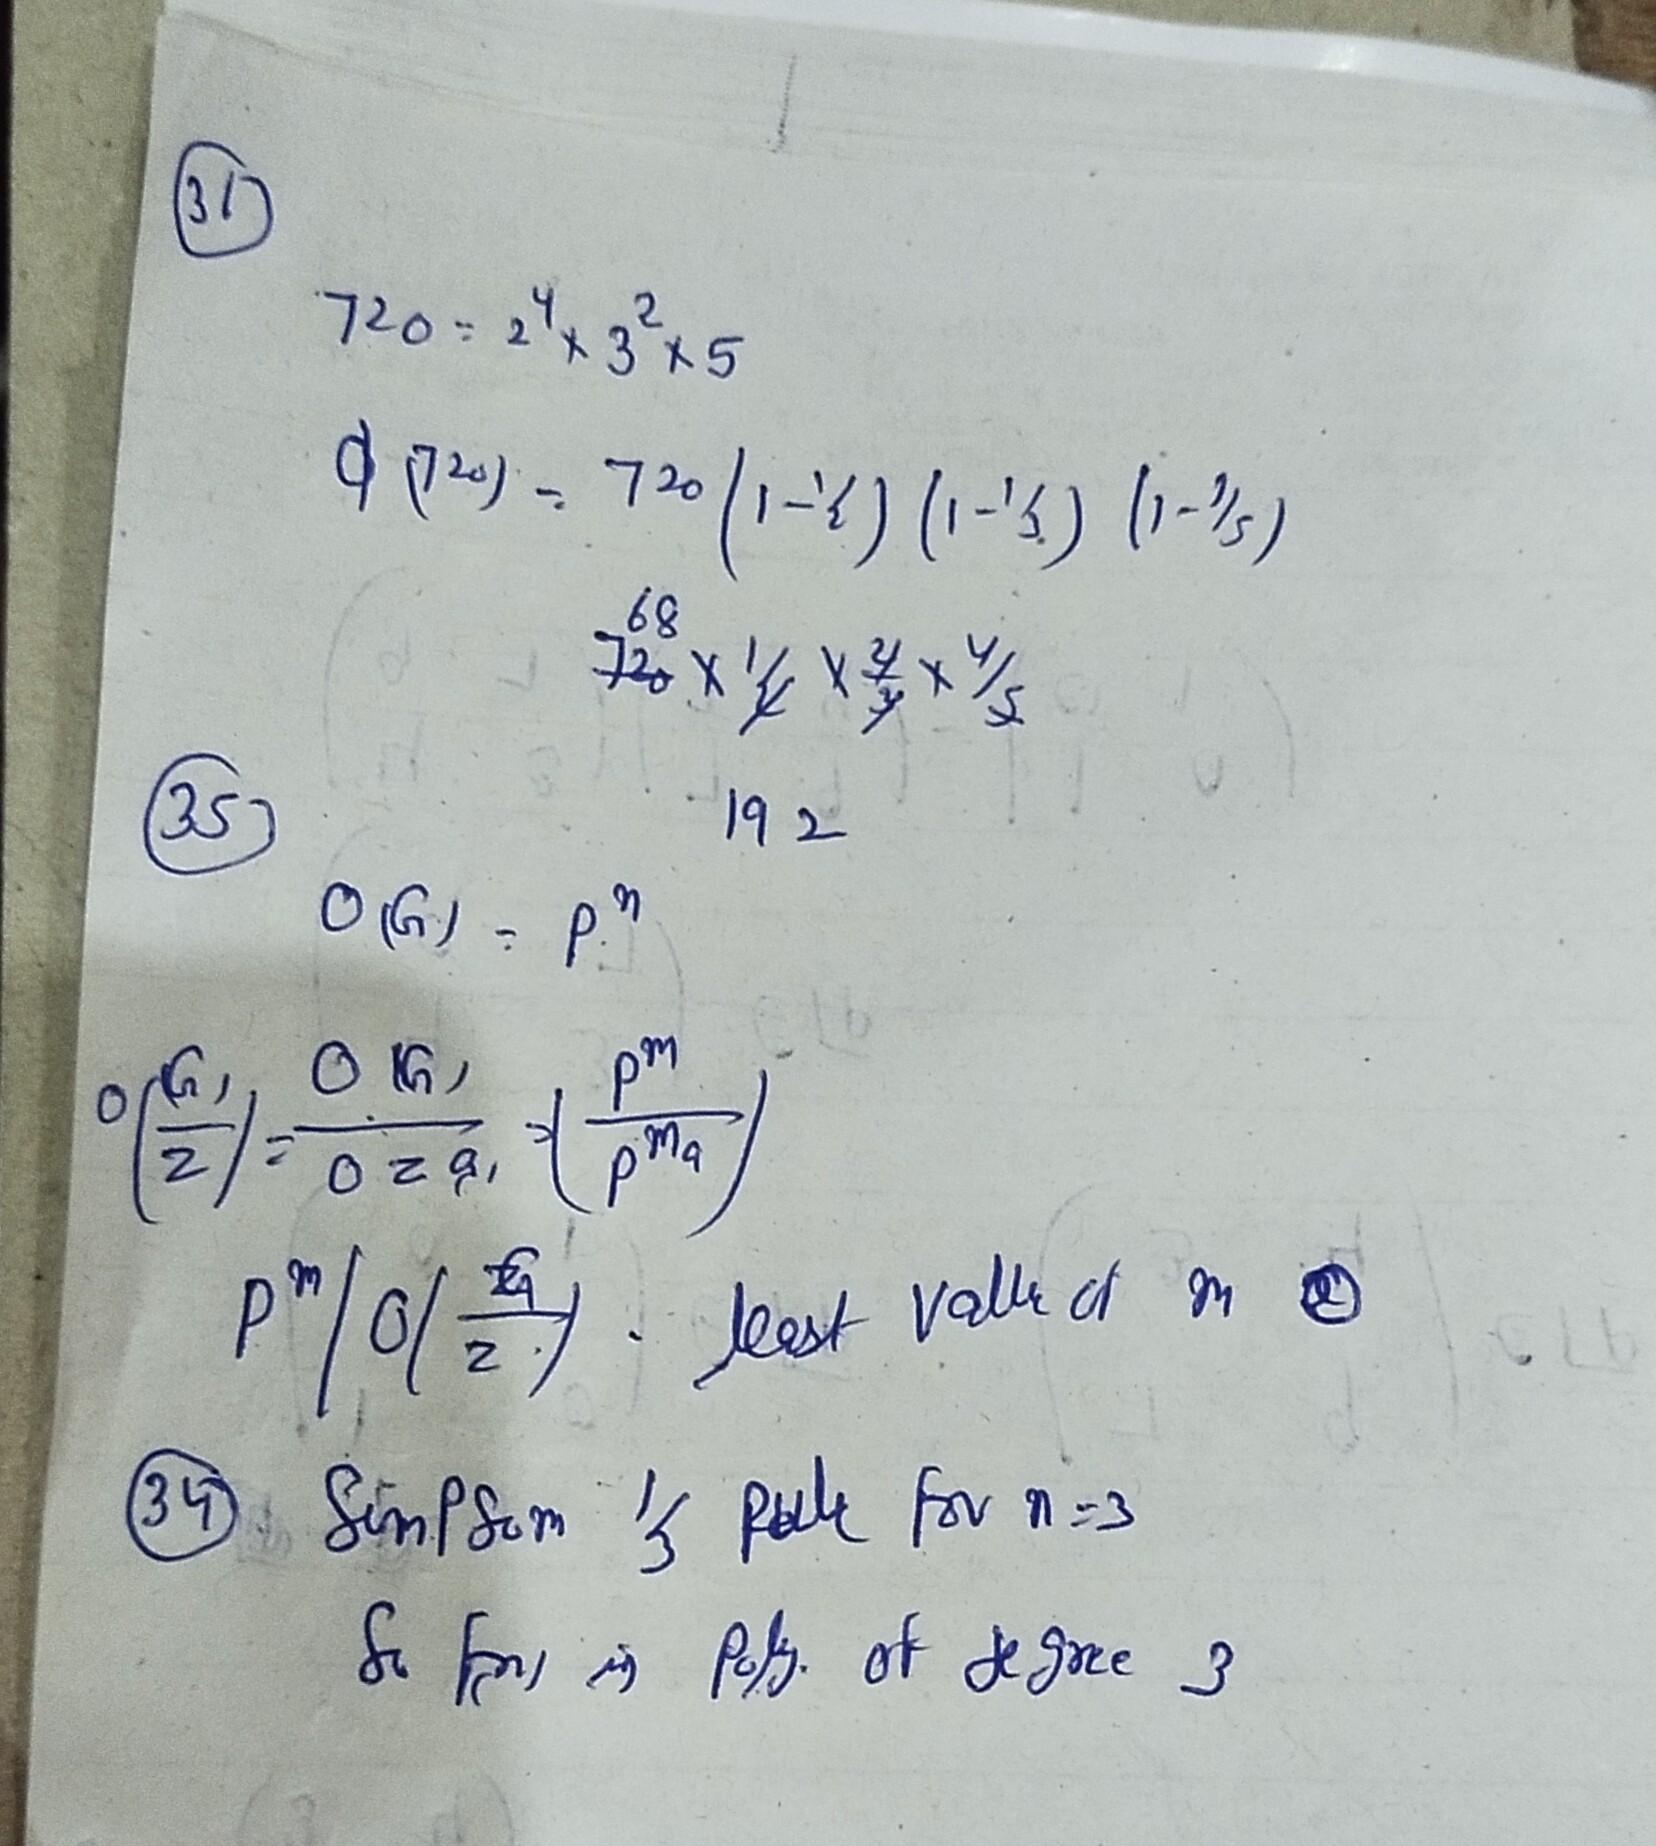 31
720 = 2^4 x 3^2 x 5
φ(720) = 720 (1-1/2) (1-1/3) (1-1/5)
68
720 x 1/2 x 2/3 x 4/5
192
35
O(G) = p^n
O(G/Z) = O(G) / O Z = (p^m / p^m)
p^m / O(G/Z) . least value of m 2
34 Simpsom 1/3 Rule for n=3
So is Poly. of degree 3